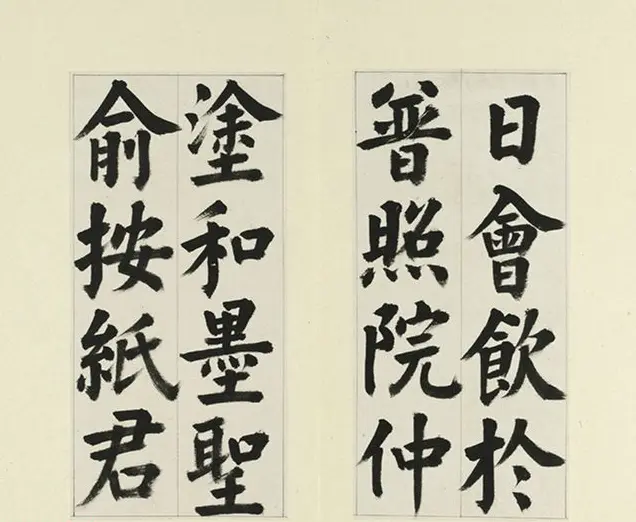 日會飲於
普照院仲
塗和墨聖
俞按紙君